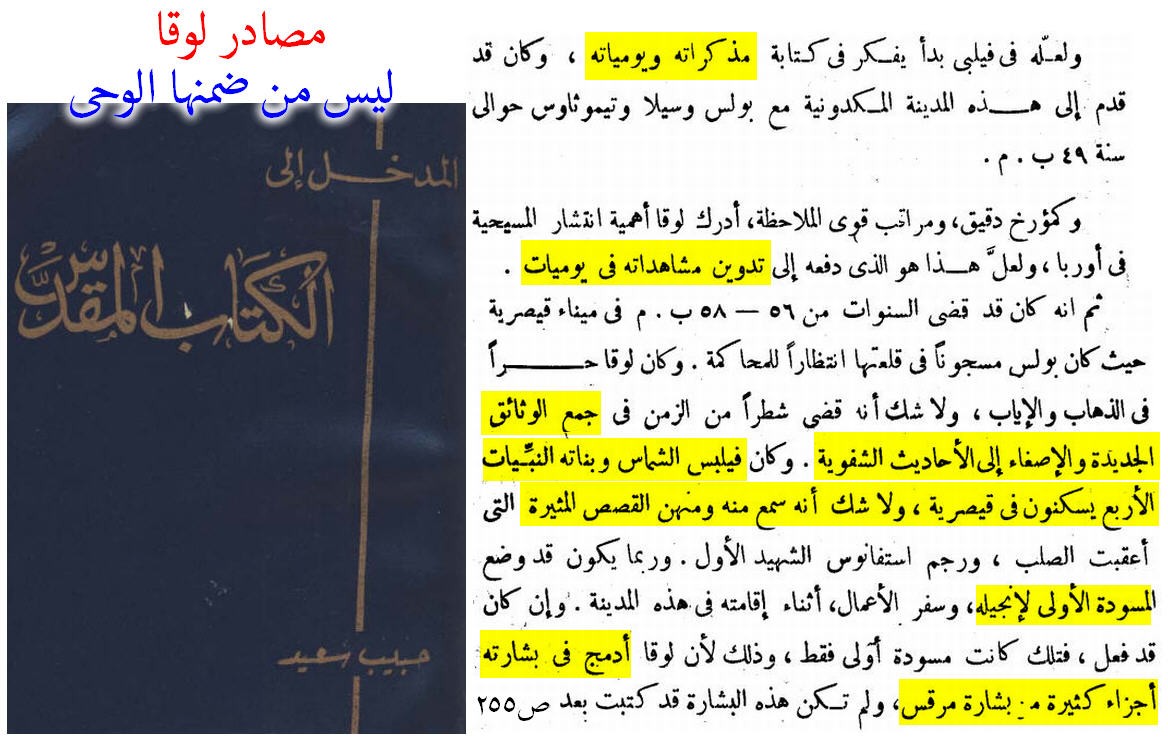 مصادر لوقا
ليس من ضمنها الوحى
المدخل إلى
الكتاب المقدس
حبيب سعيد
ولعلّه فى فيلبى بدأ يفكر فى كتابة مذكراته ويومياته ، وكان قد
قدم إلى هذه المدينة المكدونية مع بولس وسيلا وتيموثاوس حوالى
سنة ٤٩ ب . م .
وكمؤرخ دقيق، ومراقب قوى الملاحظة، أدرك لوقا أهمية انتشار المسيحية
فى أوربا ، ولعلَّ هذا هو الذى دفعه إلى تدوين مشاهداته فى يوميات .
ثم انه كان قد قضى السنوات من ٥٦ — ٥٨ ب . م فى ميناء قيصرية
حيث كان بولس مسجوناً فى قلعتها انتظاراً للمحاكمة . وكان لوقا حراً
فى الذهاب والإياب ، ولا شك أنه قضى شطراً من الزمن فى جمع الوثائق
الجديدة والإصغاء إلى الأحاديث الشفوية . وكان فيلبس الشماس وبناته النبّيات
الأربع يسكنون فى قيصرية ، ولا شك أنه سمع منه ومنهن القصص المثيرة التى
أعقبت الصلب ، ورجم استفانوس الشهيد الأول . وربما يكون قد وضع
المسودة الأولى لإنجيله، وسفر الأعمال، أثناء إقامته فى هذه المدينة . وإن كان
قد فعل ، فتلك كانت مسودة أولى فقط ، وذلك لأن لوقا أدمج فى بشارته
أجزاء كثيرة من بشارة مرقس، ولم تكن هذه البشارة قد كتبت بعد ص٢٥٥